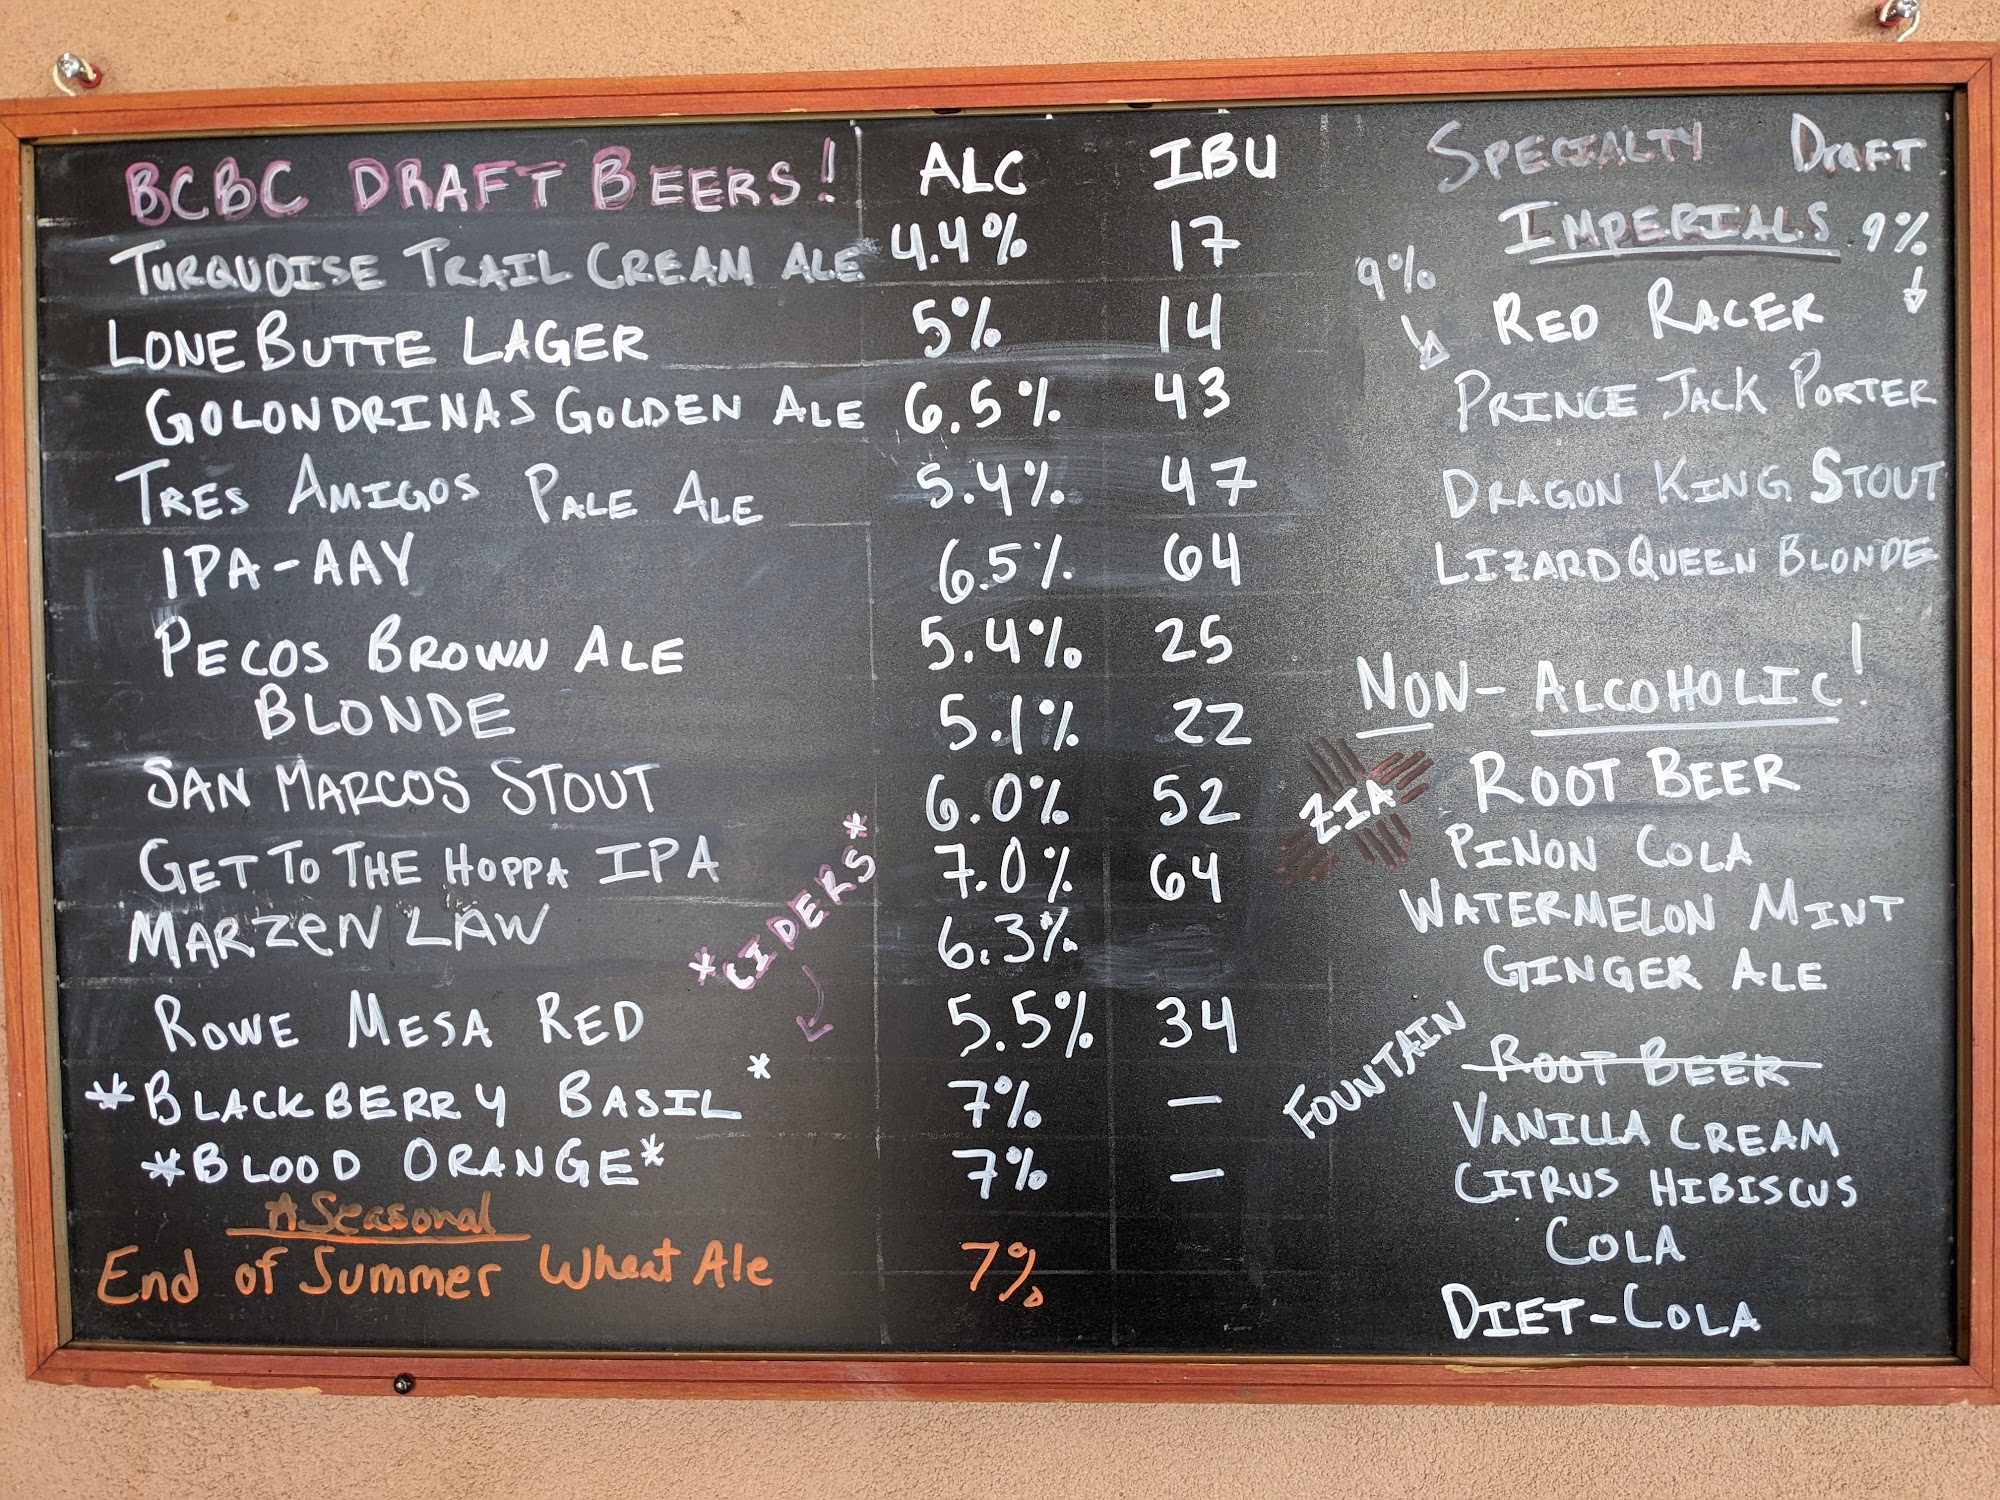 BCBC DRAFT BEERS! ALC IBU
TURQUOISE TRAIL CREAM ALE 4.4% 17
LONE BUTTE LAGER 5% 14
GOLONDRINAS GOLDEN ALE 6.5% 43
TRES AMIGOS PALE ALE 5.4% 47
IPA-AAY 6.5% 64
PECOS BROWN ALE 5.4% 25
BLONDE 5.1% 22
SAN MARCOS STOUT 6.0% 52
GET TO THE HOPPA IPA 7.0% 64
MARZEN LAW 6.3%
ROWE MESA RED 5.5% 34
*CIDERS*
*BLACKBERRY BASIL* 7% —
*BLOOD ORANGE* 7% —
A Seasonal
End of Summer Wheat Ale 7%
SPECIALTY DRAFT
IMPERIALS
9% 9%
RED RACER
PRINCE JACK PORTER
DRAGON KING STOUT
LIZARD QUEEN BLONDE
NON-ALCOHOLIC!
ZIA
ROOT BEER
PINON COLA
WATERMELON MINT
GINGER ALE
FOUNTAIN
ROOT BEER
VANILLA CREAM
CITRUS HIBISCUS
COLA
DIET-COLA